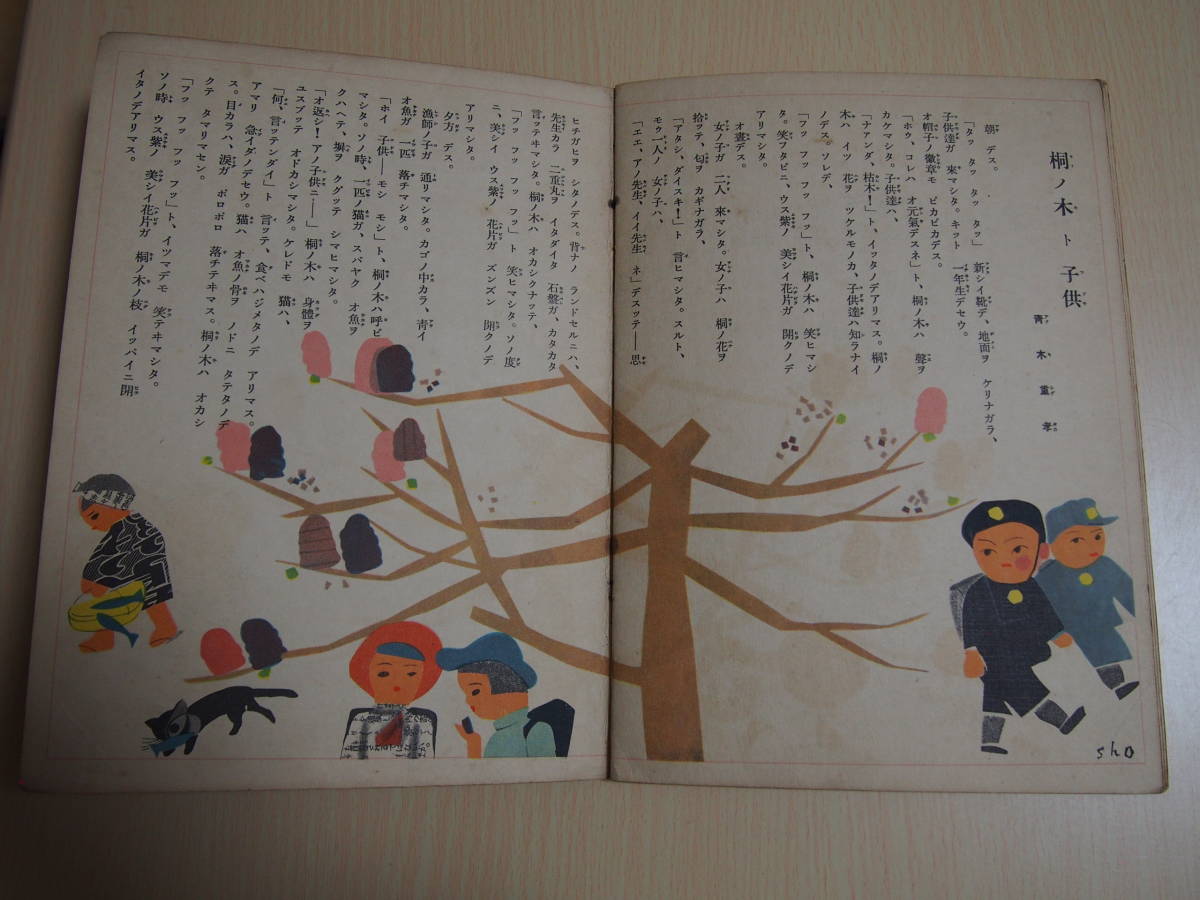 桐ノ木ト子供
青木重孝
朝 デス。
「タッ タッ タッ タッ」 新シイ靴デ、地面ヲ ケリナガラ、
子供達ガ 來マシタ。キット 一年生デセウ。
オ帽子ノ徽章モ ピカピカデス。
「ホウ、コレハ オ元氣デスネ」ト、桐ノ木ハ 聲ヲ
カケマシタ。子供達ハ、
「ナァンダ、枯木!」ト、イッタノデアリマス。桐ノ
木ハ イツ 花ヲ ツケルモノカ、子供達ハ知ラナイ
ノデス。ソレデ、
「フッ フッ フッ フッ」ト、桐ノ木ハ 笑ヒマシ
タ。笑フタビニ、ウス紫ノ 美シイ花片ガ 開クノデ
アリマシタ。
オ晝デス。
女ノ子ガ 二人 來マシタ。女ノ子ハ 桐ノ花ヲ
拾ッテ、匂ヲ カギナガラ、
「アタシ、ダイスキ!」ト 言ヒマシタ。スルト、
モゥ一人ノ 女ノ子ハ、
「エエ、アノ先生、イイ先生 ネ」デスッテ――思
ヒチガヒヲ シタノデス。背ナノ ランドセルニハ、
先生カラ 二重丸ヲ イタダイタ 石盤ガ、カタカタ
言ッテヰマシタ。桐ノ木ハ オカシクナッテ、
「フッ フッ フッ フッ」ト 笑ヒマシタ。ソノ度
ニ、美シイ ウス紫ノ 花片ガ ズンズン 開クノデ
アリマシタ。
夕方 デス。
漁師ノ子ガ 通リマシタ。カゴノ中カラ、靑イ
オ魚ガ 一匹 落チマシタ。
「ホイ 子供――モシ モシ」ト、桐ノ木ハ呼ビ
マシタ。ソノ時、一匹ノ猫ガ、スバヤク オ魚ヲ
クハヘテ、塀ヲ クグッテ シマヒマシタ。
「オ返シ!アノ子供ニ――」桐ノ木ハ 身體ヲ
ユスブッテ オドカシマシタ。ケレドモ 猫ハ、
「何、言ッテンダイ」ト 言ッテ、食ベハジメタノデ アリマス。
アマリ 急イダノデセウ。猫ハ オ魚ノ骨ヲ ノドニ タテタノデ
ス。目カラハ、淚ガ ポロポロ 落チテヰマス。桐ノ木ハ オカシ
クテ タマリマセン。
「フッ フッ フッ」ト、イツマデモ 笑テヰマシタ。
ソノ時 ウス紫ノ 美シイ花片ガ 桐ノ木ノ枝 イッパイニ 開
イタノデアリマス。
sho